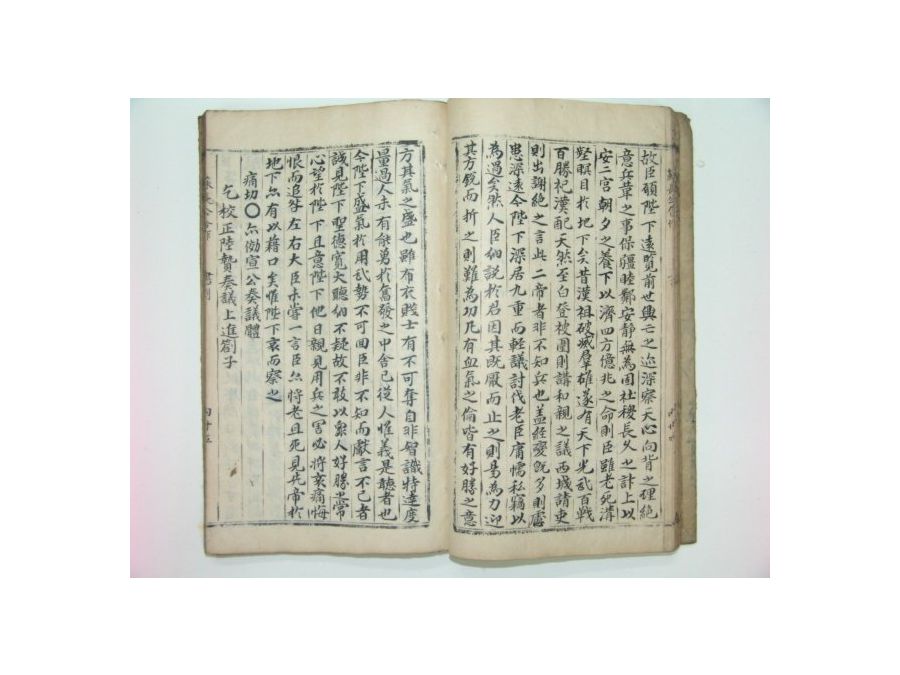 故臣願陛下遠覽前世興亡之迹深察天心向背之理絶
意兵革之事保疆睦鄰安靜無為固社稷長久之計上以
安二宮朝夕之養下以濟四方億兆之命則臣雖老死溝
壑瞑目於地下矣昔漢祖破滅羣雄遂有天下光武百戰
百勝祀漢配天然至白登被圍則講和親之議西域請吏
則出謝絶之言此二帝者非不知兵也盖經變既多則慮
患深遠今陛下深居九重而輕議討伐老臣庸懦私竊以
為過矣然人臣納說於君因其既厭而止之則易為力迎
其方鋭而折之則難為功凡有血氣之倫皆有好勝之意
方其氣之盛也雖布衣賤士有不可奪自非智識特達度
量過人未有能勇於奮發之中舍己從人惟義是聽者也
今陛下盛氣於用武勢不可回臣非不知而獻言不已者
誠見陛下聖德寬大聽納不疑故不敢以衆人好勝之常
心望於陛下且意陛下他日親見用兵之害必將哀痛悔
恨而追咎左右大臣未嘗一言臣亦將老且死見先帝於
地下亦有以藉口矣惟陛下哀而察之
痛切〇亦倣宣公奏議體
乞校正陸贄奏議上進劄子